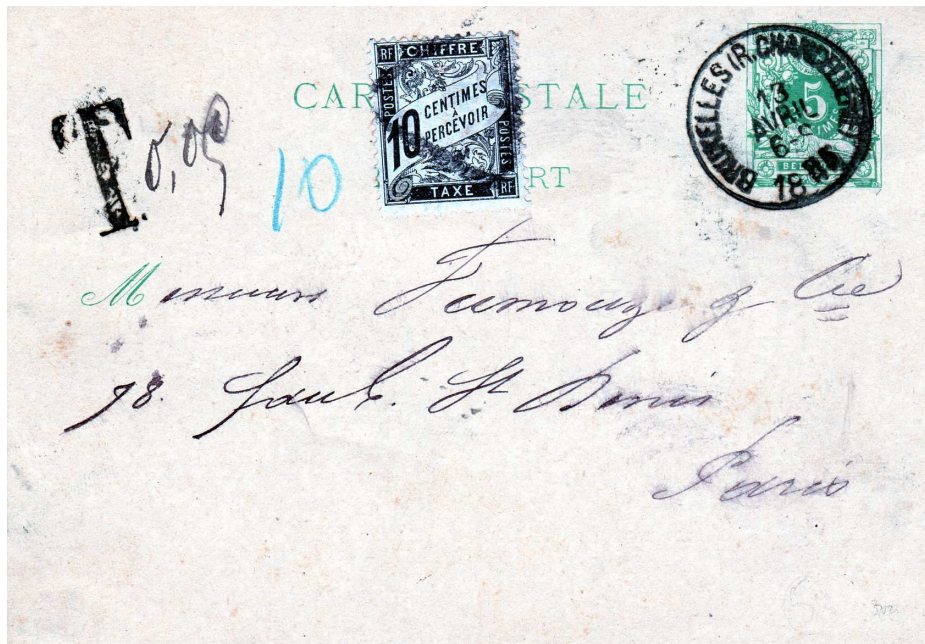 CARTE POSTALE
RF CHIFFRE RF
POSTES
10 CENTIMES
À
PERCEVOIR
POSTES
TAXE RF
5
CENTIMES
BRUXELLES (R. CHANCELLERIE)
13
AVRIL
6-S
18
T
0,05
10
RT
Messieurs Fumouze & Cie
78. Faub. St Denis
Paris